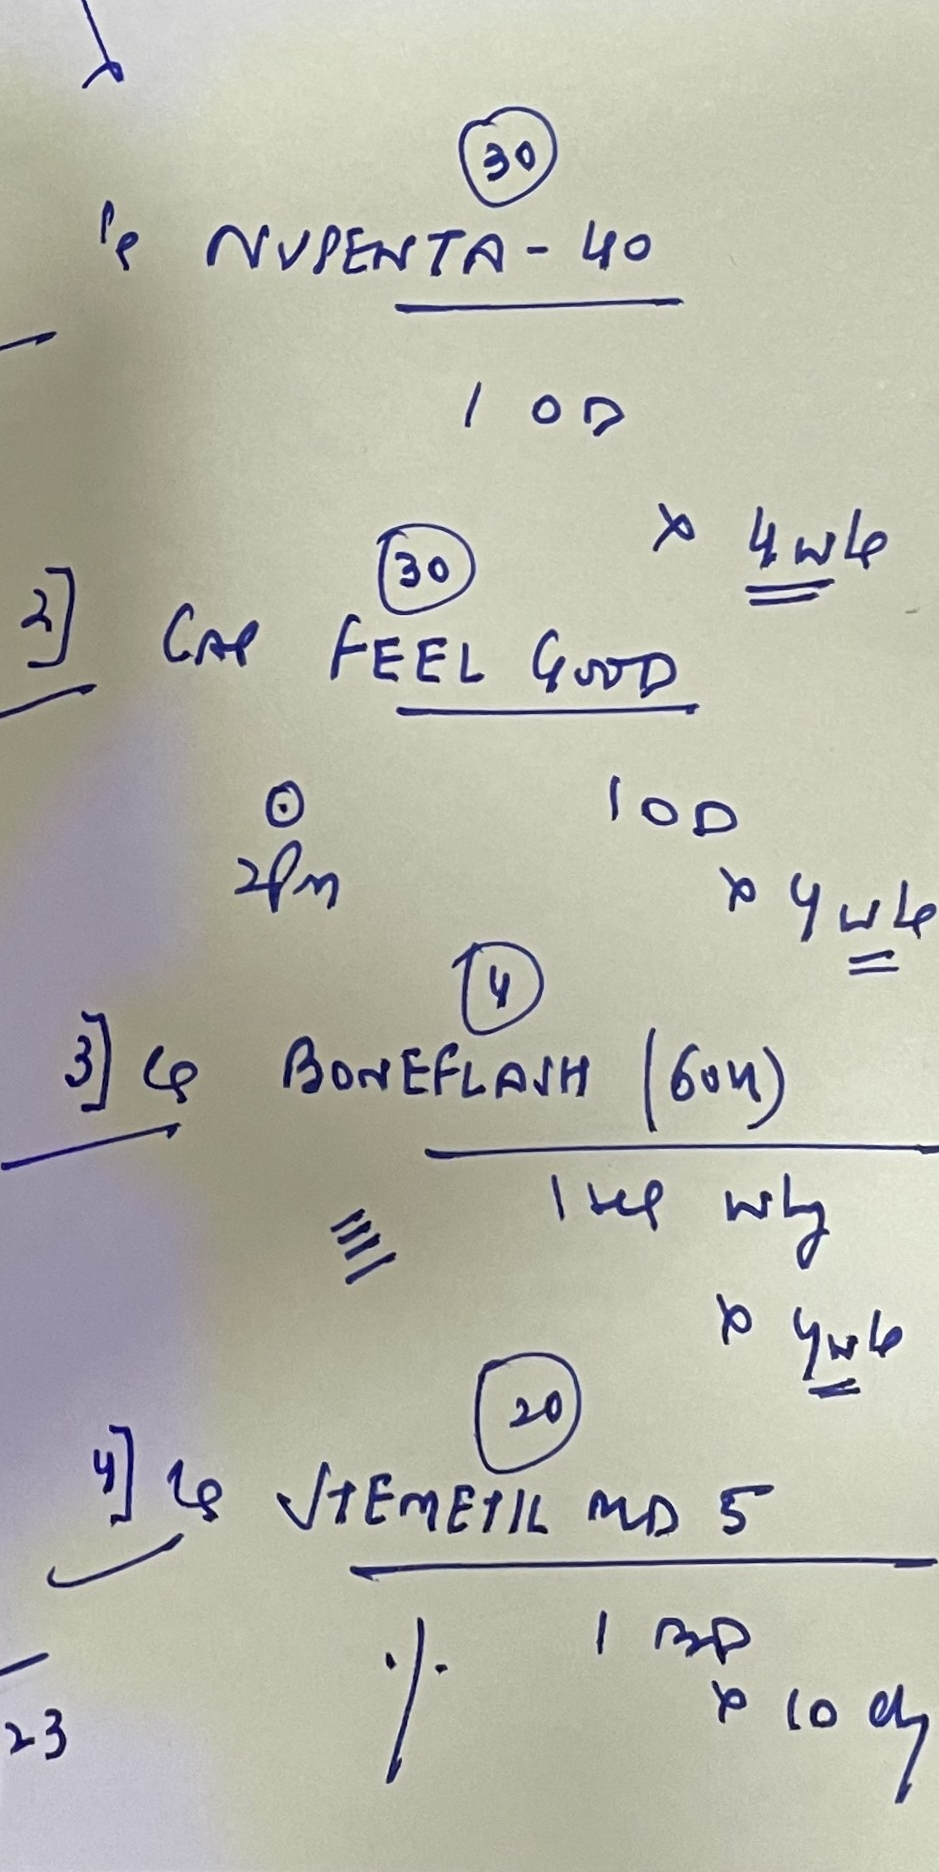 30
NUPENTA - 40
1 OD
x 4 wk
30
2] CAP FEEL GOOD
1 OD
2pm
x 4 wk
4
3] BONEFLASH (60K)
1 wkly
x 4 wk
20
4] STEMETIL MD 5
1 BD
x 10 dy
23